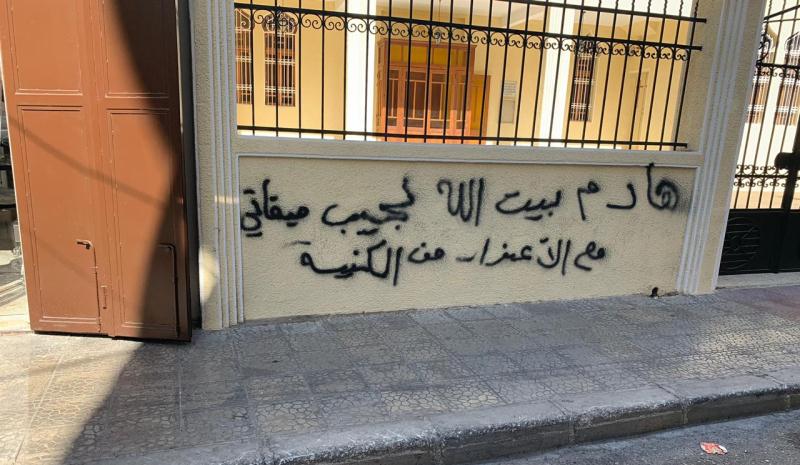 هادم بيت الله نجيب ميقاتي
مع الاعتذار من الكنيسة